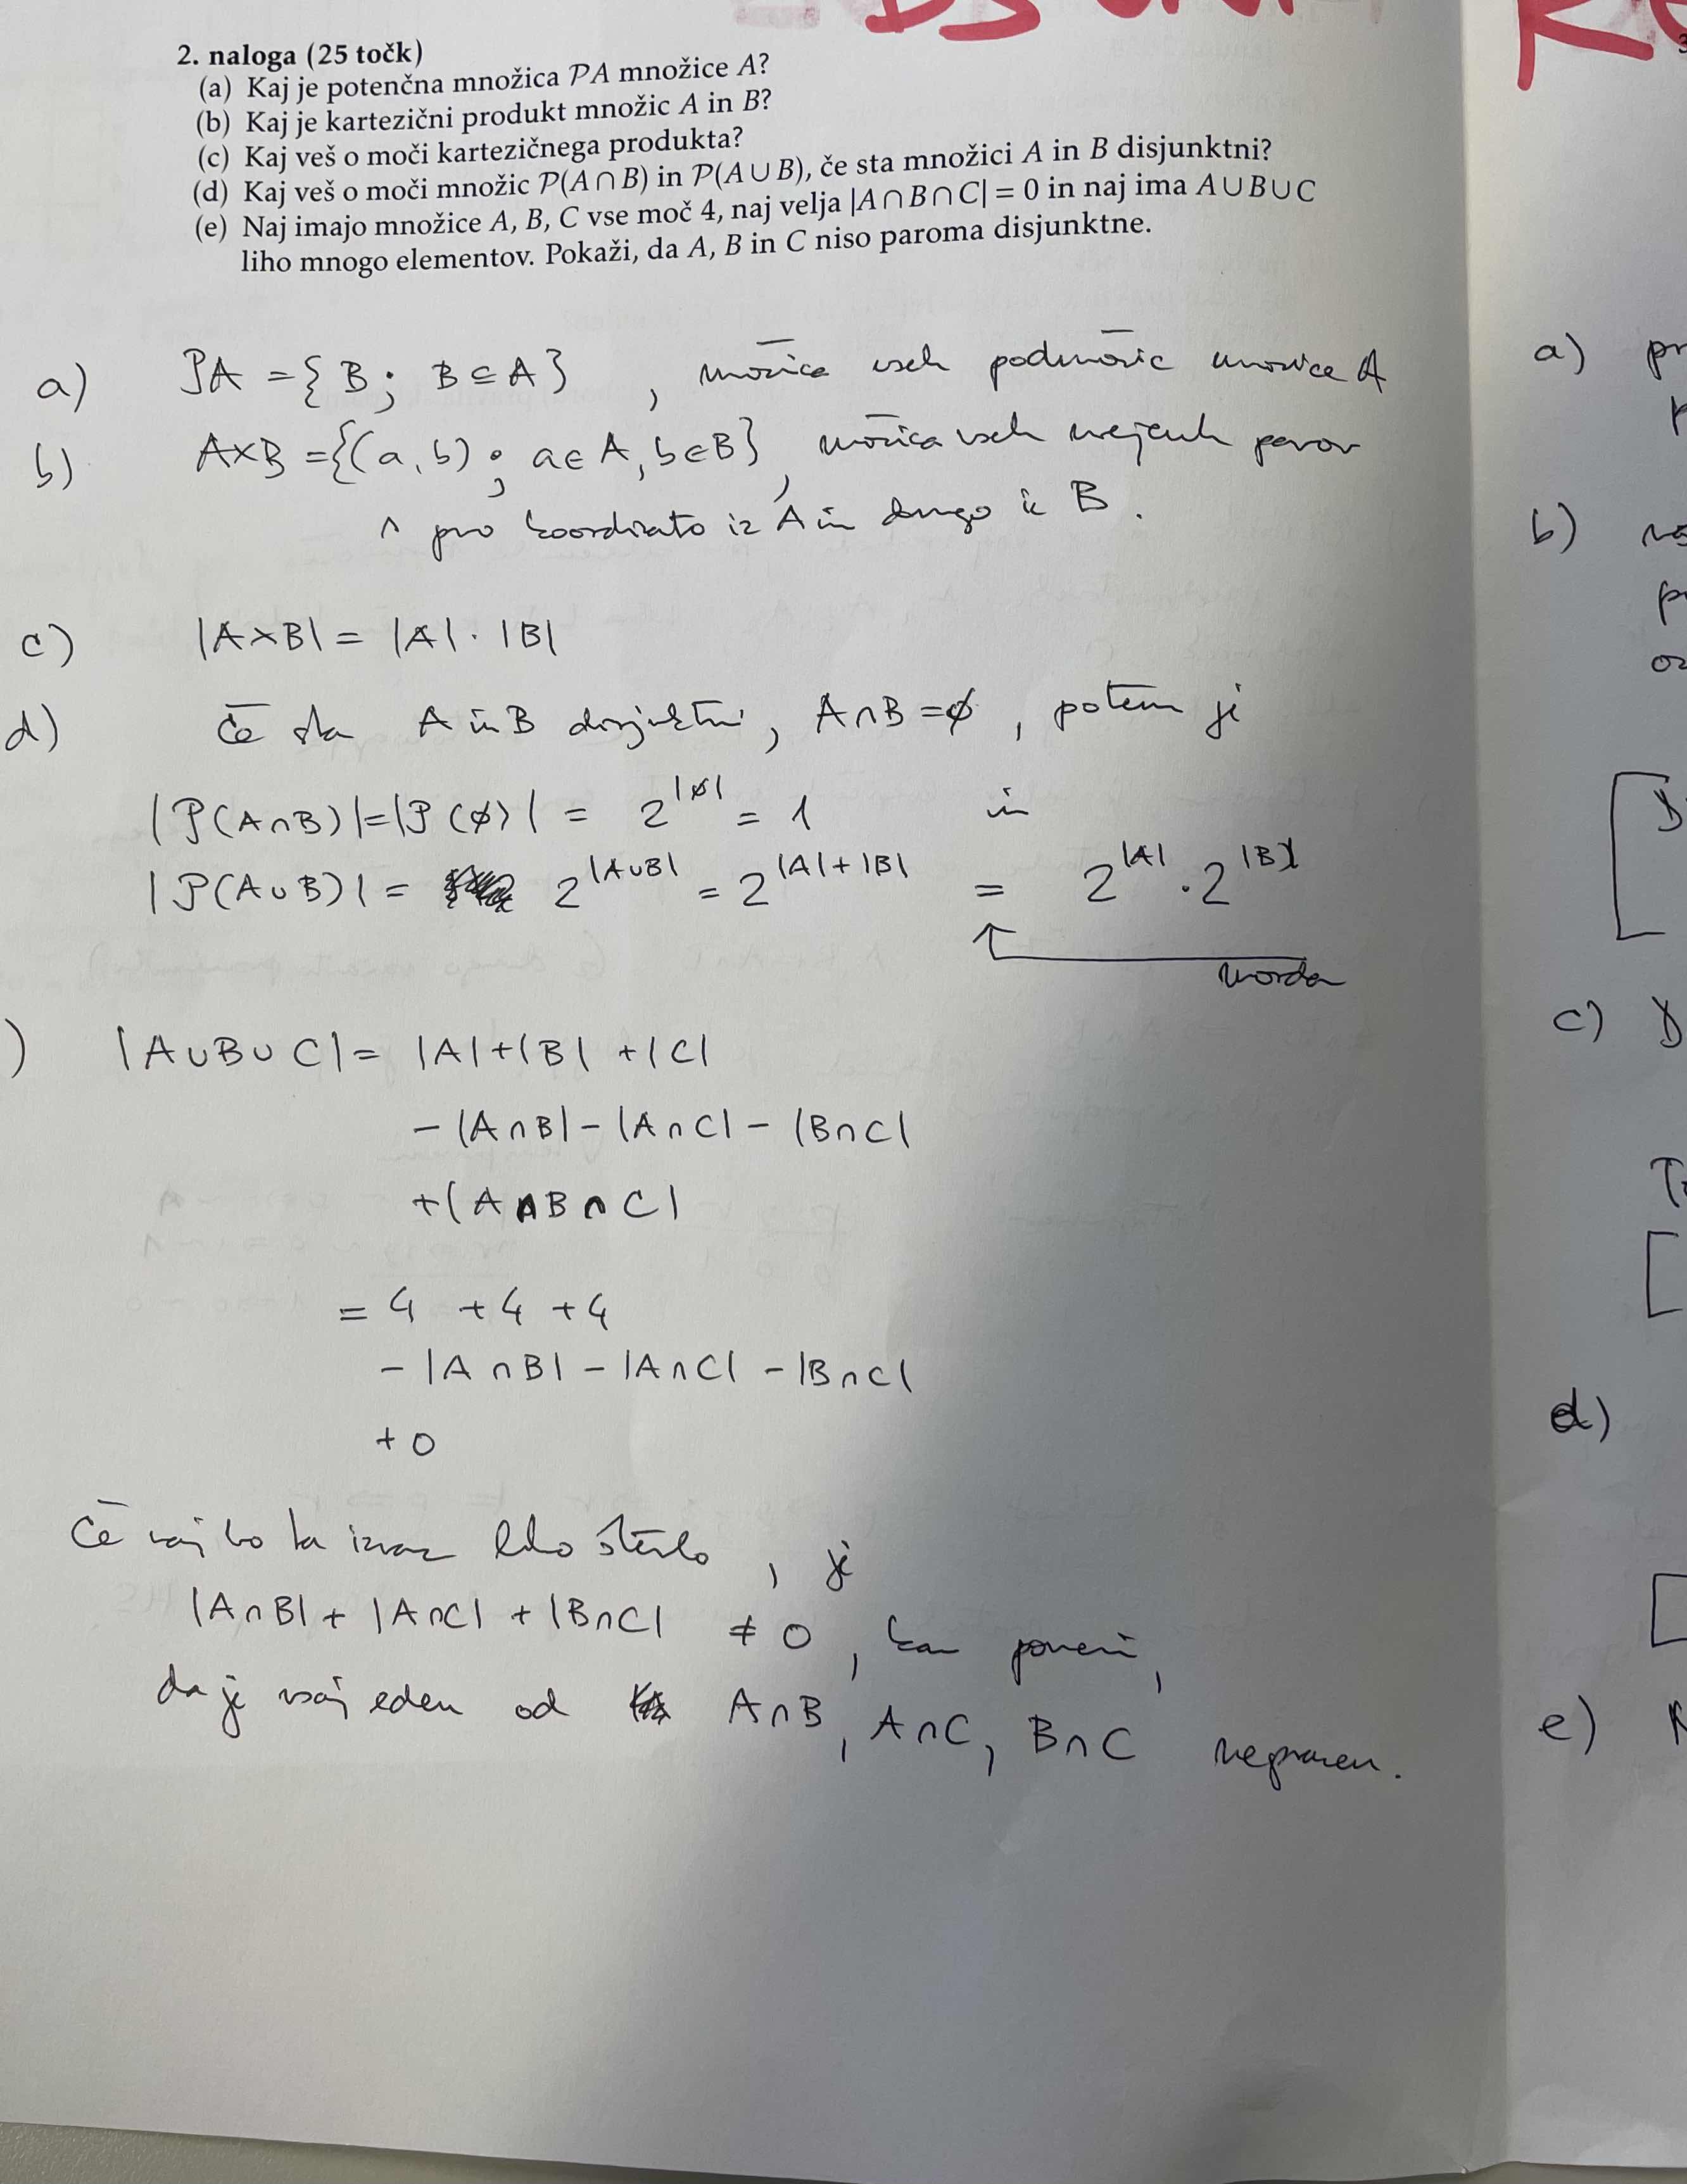 2. naloga (25 točk)
(a) Kaj je potenčna množica 𝒫A množice A?
(b) Kaj je kartezični produkt množic A in B?
(c) Kaj veš o moči kartezičnega produkta?
(d) Kaj veš o moči množic 𝒫(A∩B) in 𝒫(A∪B), če sta množici A in B disjunktni?
(e) Naj imajo množice A, B, C vse moč 4, naj velja |A∩B∩C| = 0 in naj ima A∪B∪C
liho mnogo elementov. Pokaži, da A, B in C niso paroma disjunktne.
a) 𝒫A = { B ; B ⊆ A } , množica vseh podmnožic množice A
b) A×B = {(a, b) ; a∈A, b∈B} , množica vseh urejenih parov
s prvo koordinato iz A in drugo iz B.
c) |A×B| = |A| · |B|
d) Če sta A in B disjunktni, A∩B = ∅, potem je
|𝒫(A∩B)| = |𝒫(∅)| = 2^|∅| = 1 in
|𝒫(A∪B)| = 2^|A∪B| = 2^(|A|+|B|) = 2^|A| · 2^|B|
↑ morda
) |A∪B∪C| = |A|+|B|+|C|
− |A∩B| − |A∩C| − |B∩C|
+ |A∩B∩C|
= 4 + 4 + 4
− |A∩B| − |A∩C| − |B∩C|
+ 0
Če naj bo ta izraz liho število, je
|A∩B| + |A∩C| + |B∩C| ≠ 0, kar pomeni,
da je vsaj eden od A∩B, A∩C, B∩C neprazen.
a) pr
b)
c)
d)
e)